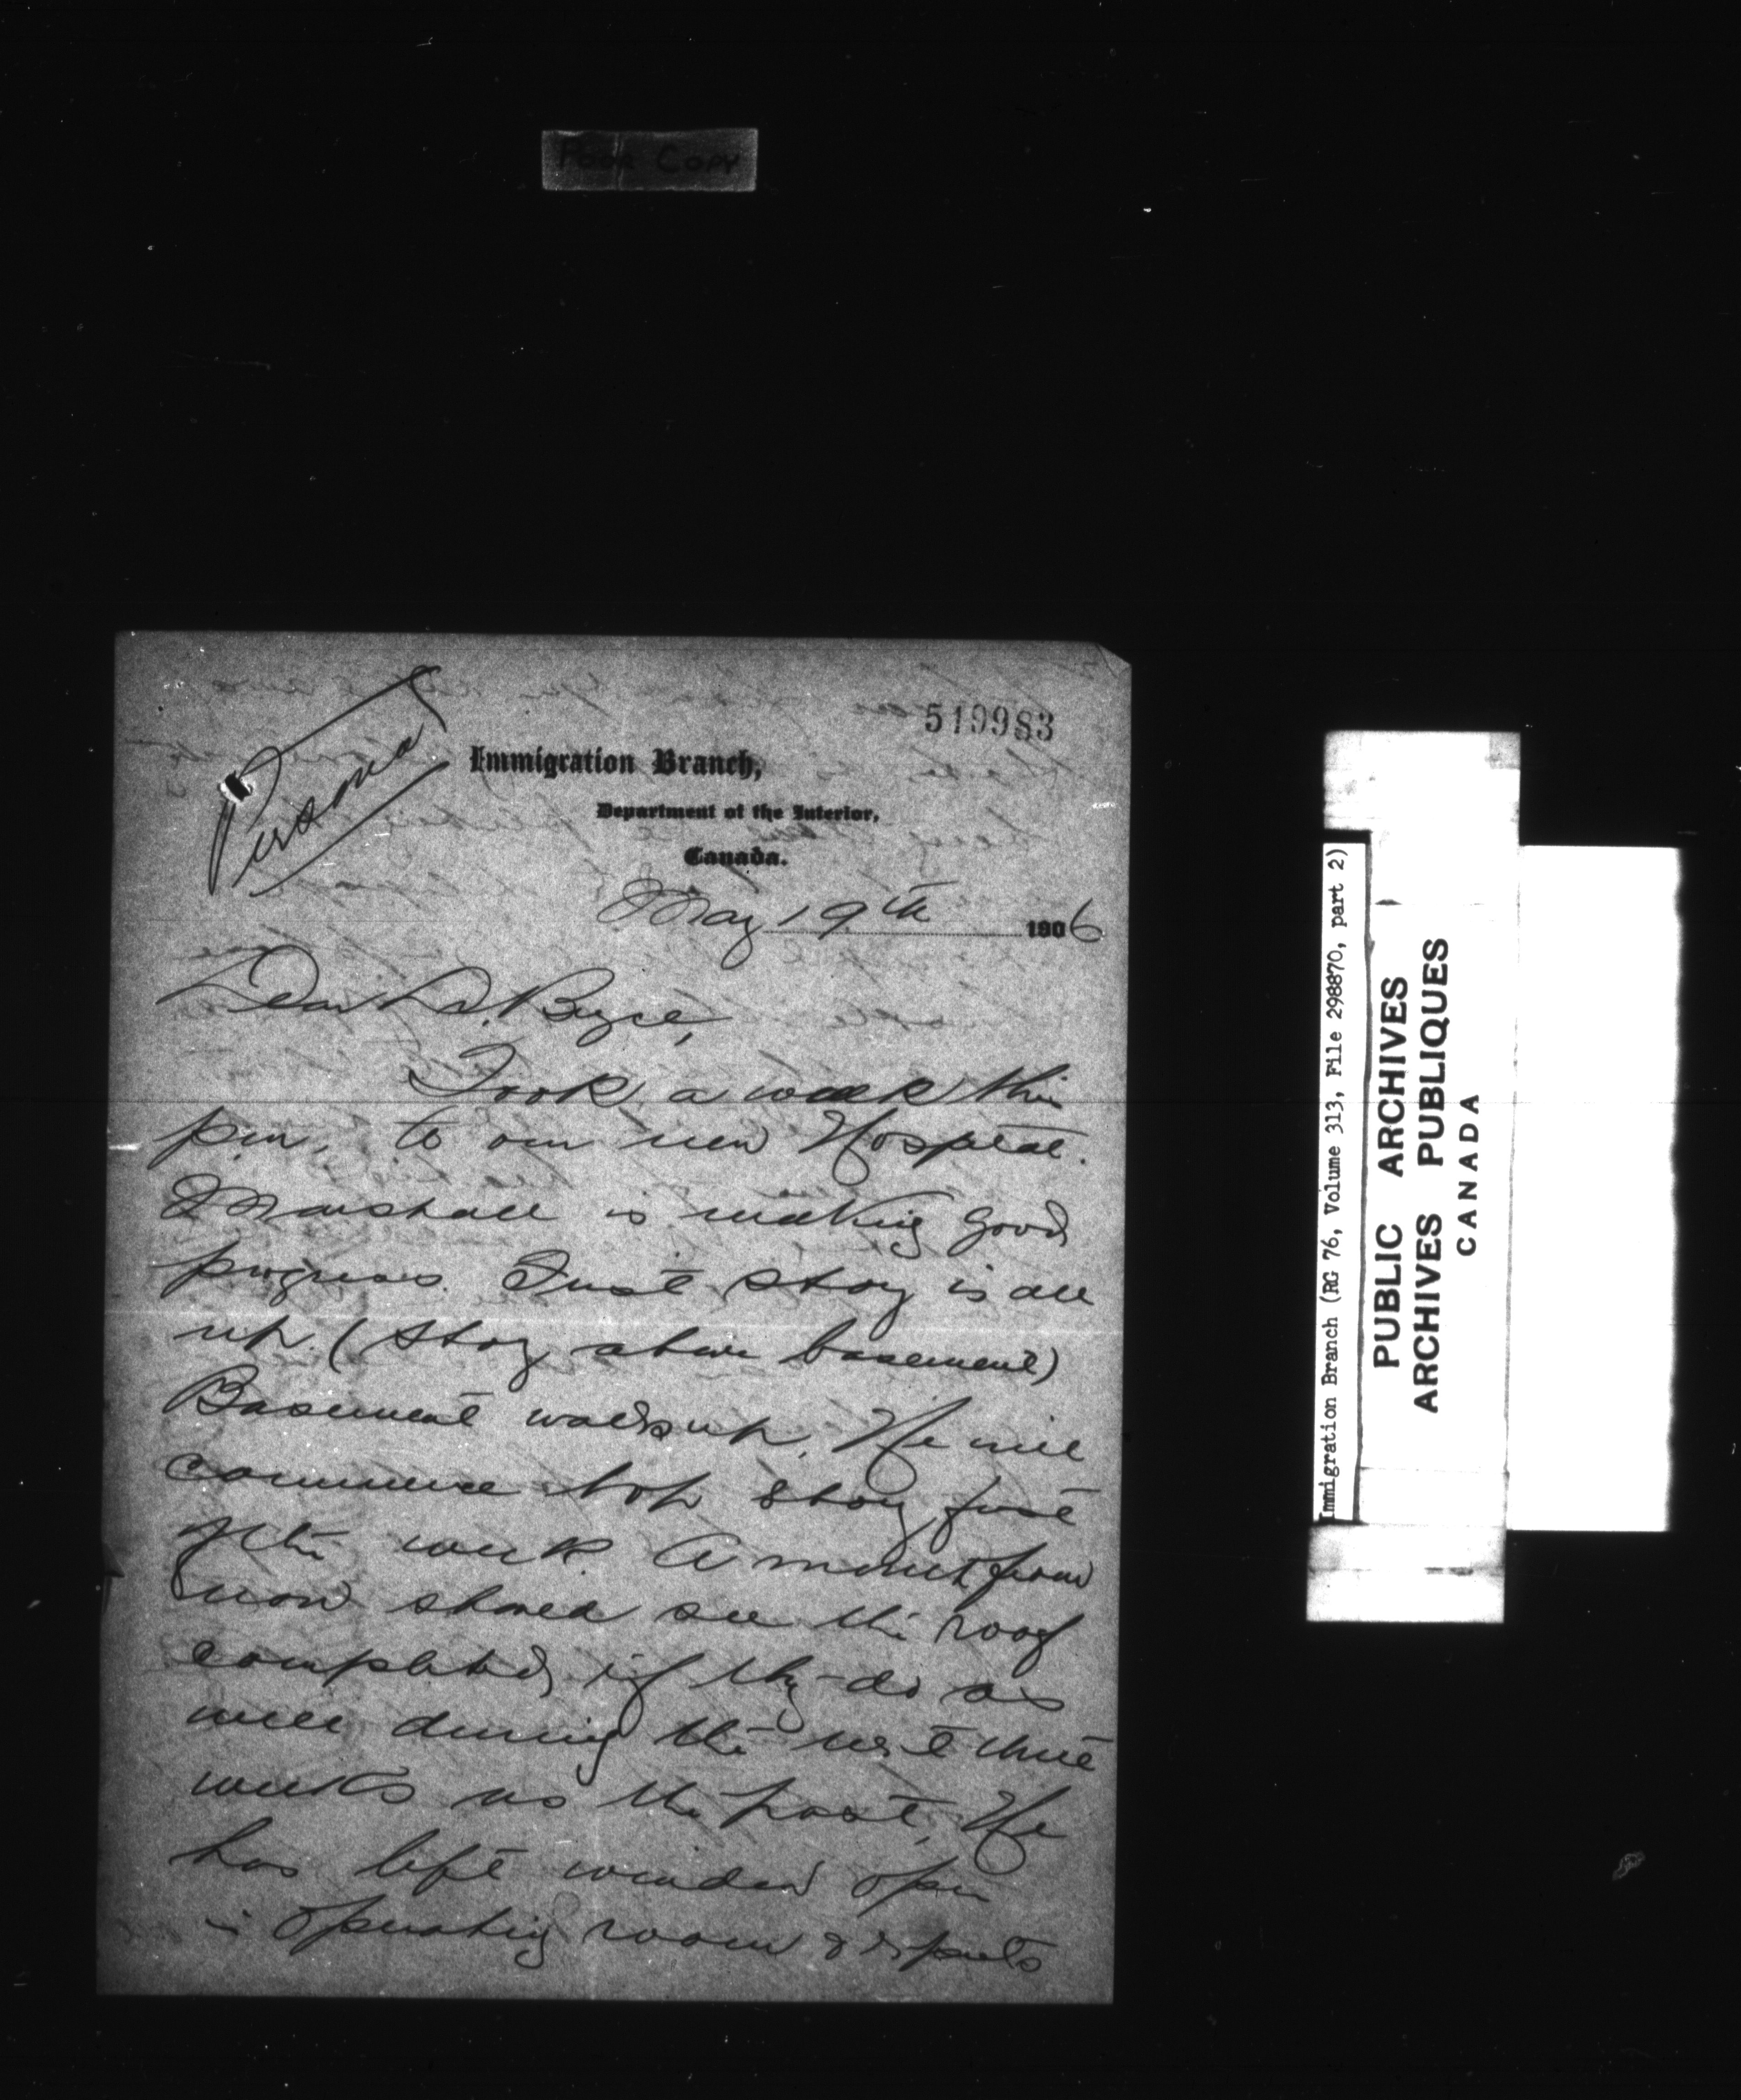 Poor Copy
519983
Personal
Immigration Branch,
Department of the Interior,
Canada.
May 19th 1906
Dear Dr. Bryce,
Took a walk this
p.m. to our new Hospital.
Marshall is making good
progress. First story is all
up. (story above basement)
Basement walls up. He will
commence top story first
of the week. A month from
now should see the roof
completed, if they do as
well during the next three
weeks as the past. He
has left window open
in operating room &
Immigration Branch (RG 76, Volume 313, File 298870, part 2)
PUBLIC ARCHIVES
ARCHIVES PUBLIQUES
CANADA